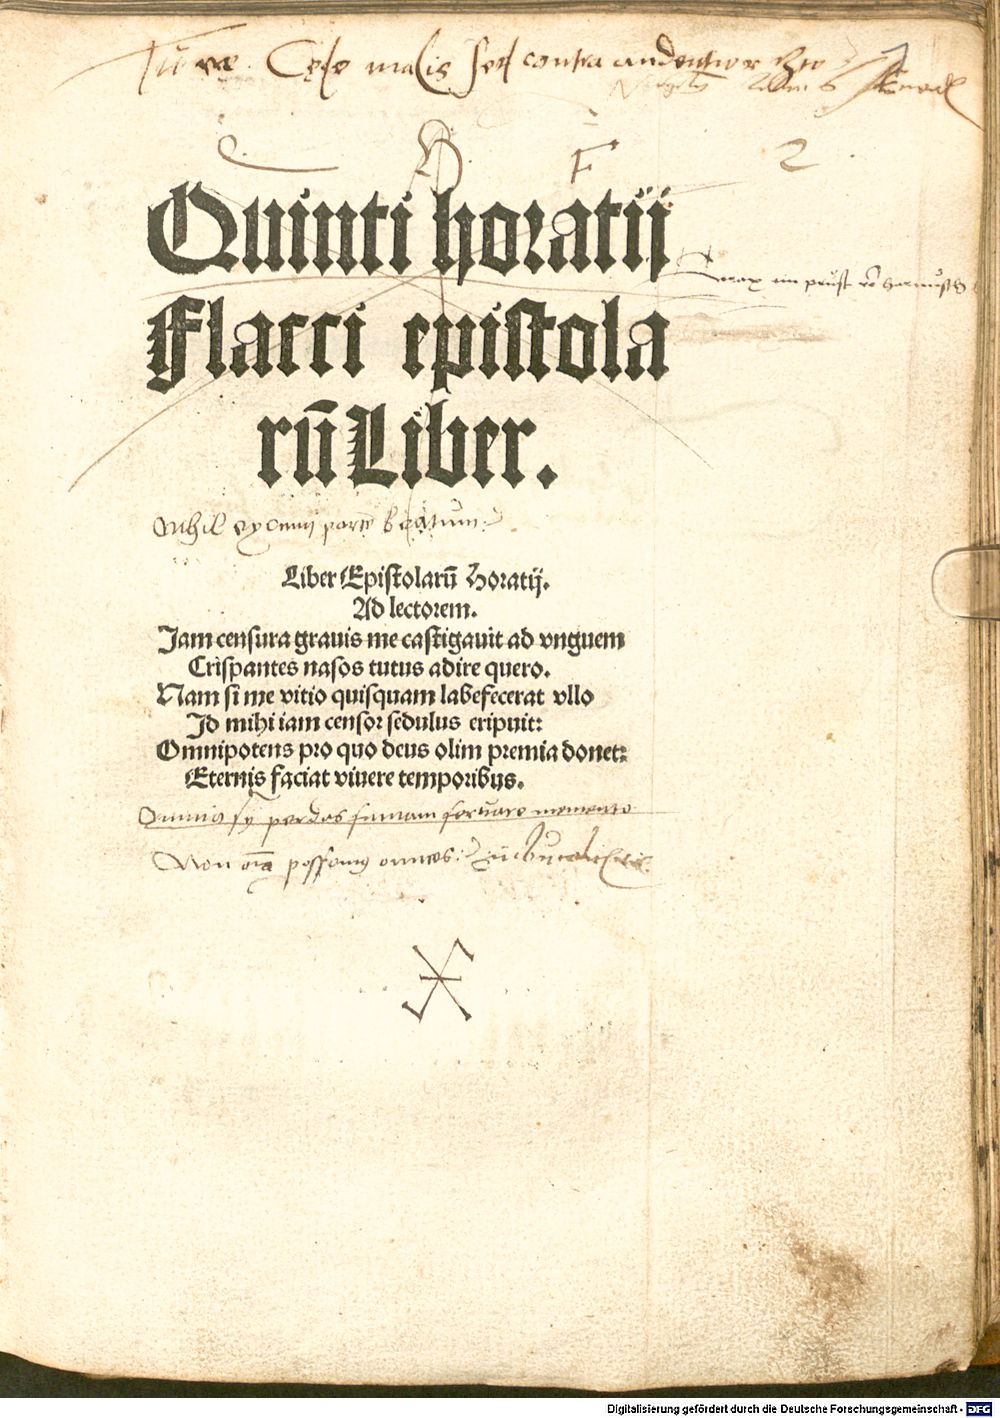 Tu ne Cede malis sed contra audentior Ito
F 2
Quinti horatij
Flacci epistola
rū Liber.
Nihil ex omni parte beatum
Liber Epistolarū Horatij.
Ad lectorem.
Jam censura grauis me castigauit ad vnguem
Crispantes nasos tutus adire quero.
Nam si me vitio quisquam labefecerat vllo
Id mihi iam censor sedulus eripuit:
Omnipotens pro quo deus olim premia donet:
Eternis faciat viuere temporibus.
Omnia sy perdas famam seruare memento
Non oīa possumus omnes:
Digitalisierung gefördert durch die Deutsche Forschungsgemeinschaft - DFG